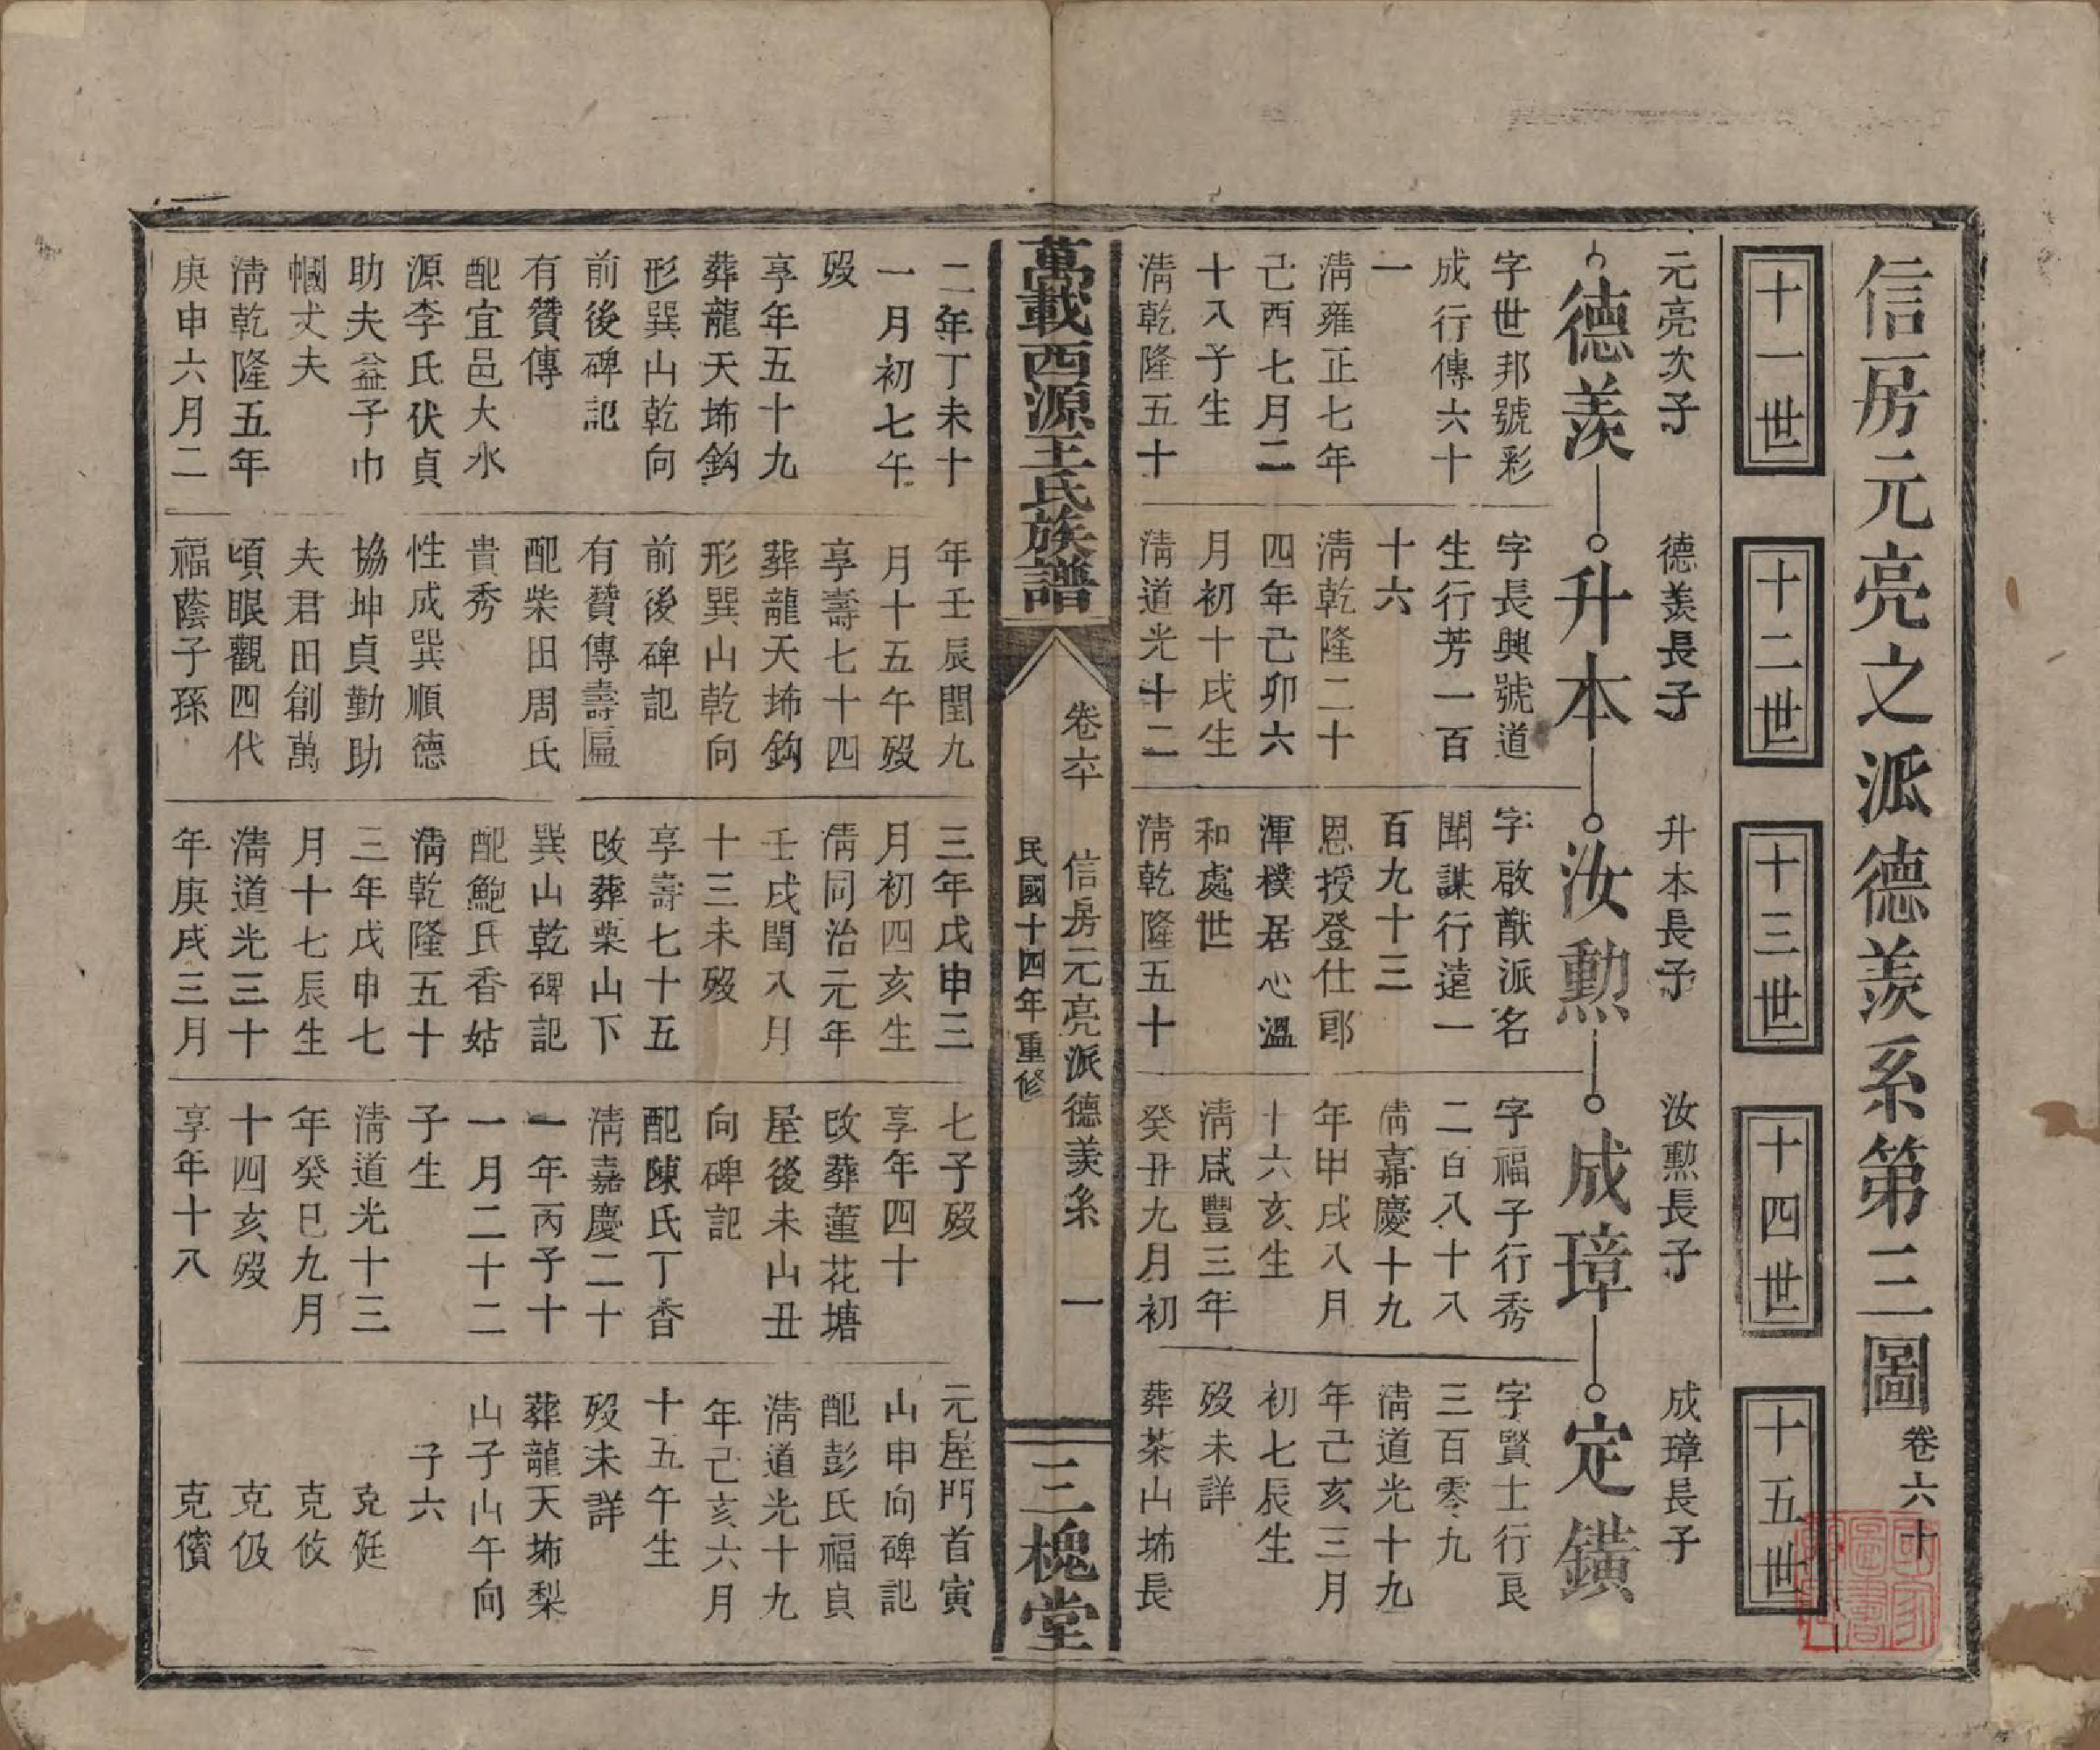 信房元亮之派德羨系第三圖 卷六十
十一世
十二世
十三世
十四世
十五世
元亮次子
德羨
字世邦號彩
成行傳六十
一
淸雍正七年
己酉七月二
十八子生
淸乾隆五十
二年丁未十
一月初七午
歿
享年五十九
葬龍天㘵鈎
形巽山乾向
前後碑記
有贊傳
配宜邑大水
源李氏伏貞
助夫益子巾
幗丈夫
淸乾隆五年
庚申六月二
德羨長子
升本
字長興號道
生行芳一百
十六
淸乾隆二十
四年己卯六
月初十戌生
淸道光十二
年壬辰閏九
月十五午歿
享壽七十四
葬龍天㘵鈎
形巽山乾向
前後碑記
有贊傳壽匾
配柴田周氏
貴秀
性成巽順德
協坤貞勤助
夫君田創萬
頃眼觀四代
福蔭子孫
升本長子
汝勲
字啟猷派名
聞謀行遠一
百九十三
恩授登仕郎
渾樸居心溫
和處世
淸乾隆五十
三年戊申三
月初四亥生
淸同治元年
壬戌閏八月
十三未歿
享壽七十五
改葬栗山下
巽山乾碑記
配鮑氏香姑
淸乾隆五十
三年戊申七
月十七辰生
淸道光三十
年庚戌三月
汝勲長子
成璋
字福子行秀
二百八十八
淸嘉慶十九
年甲戌八月
十六亥生
淸咸豐三年
癸丑九月初
七子歿
享年四十
改葬蓮花塘
屋後未山丑
向碑記
配陳氏丁香
淸嘉慶二十
一年丙子十
一月二十二
子生
淸道光十三
年癸巳九月
十四亥歿
享年十八
成璋長子
定鐄
字賢士行良
三百零九
淸道光十九
年己亥三月
初七辰生
歿未詳
葬茶山㘵長
元屋門首寅
山申向碑記
配彭氏福貞
淸道光十九
年己亥六月
十五午生
歿未詳
葬龍天㘵梨
山子山午向
子六
克侹
克攸
克伋
克儐
萬載西源王氏族譜
卷六十
信房元亮派德羨系
一
民國十四年重修
三槐堂